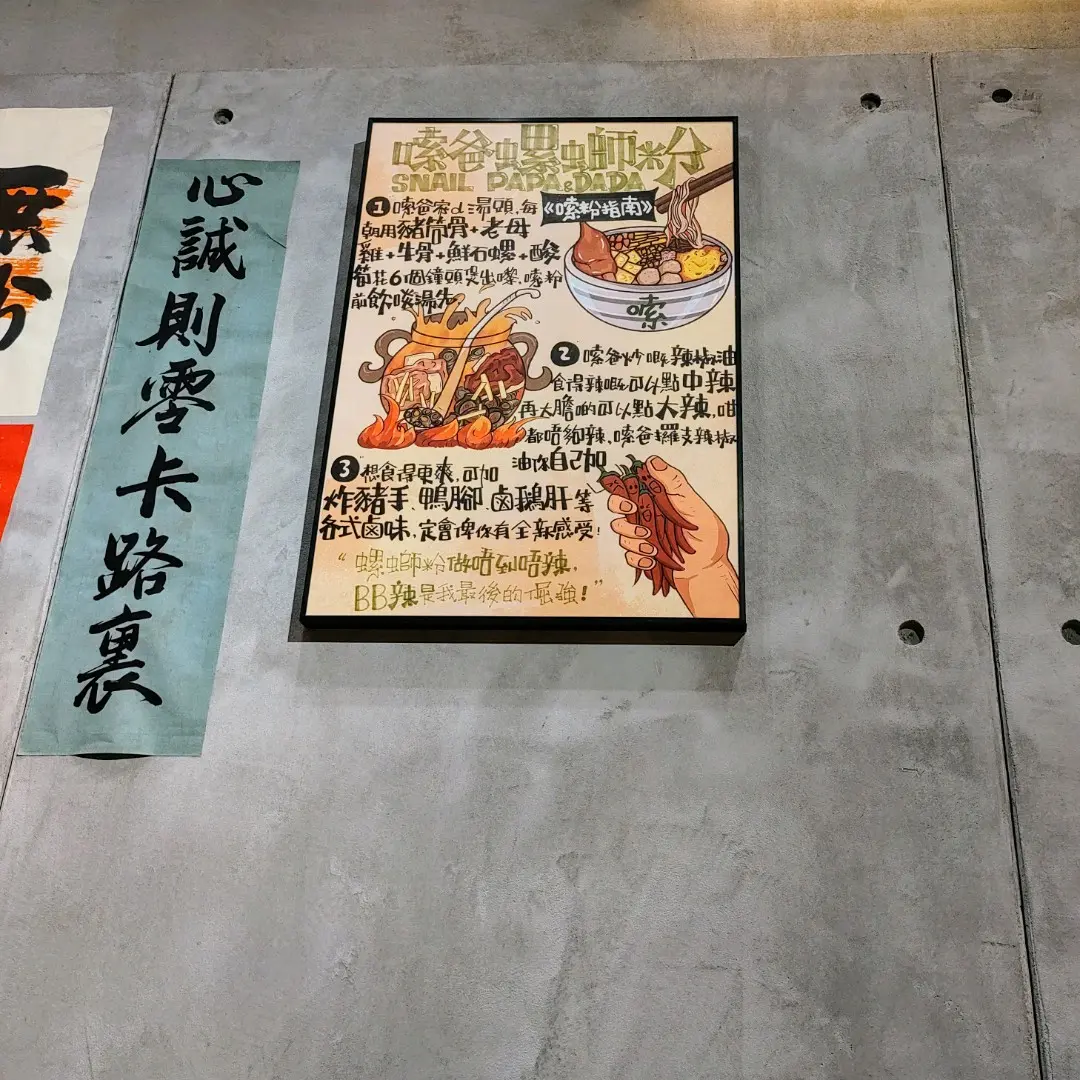 嗦爸螺螄粉
SNAIL PAPA & DADA
《嗦粉指南》
1 嗦爸家d湯頭，每
朝用豬筒骨+老母
雞+牛骨+鮮石螺+酸
筍花6個鐘頭煲出嚟，嗦粉
前飲啖湯先
嗦
2 嗦爸炒嘅辣椒油
食得辣嘅可以點中辣
再大膽啲可以點大辣，咁
都唔夠辣，嗦爸攞支辣椒
油你自己加
3 想食得更爽，可加
炸豬手、鴨腳、鹵鵝肝等
各式鹵味，定會俾你有全新感受！
“螺螄粉做唔到唔辣，
BB辣是我最後的倔強！”
心誠則零卡路裏